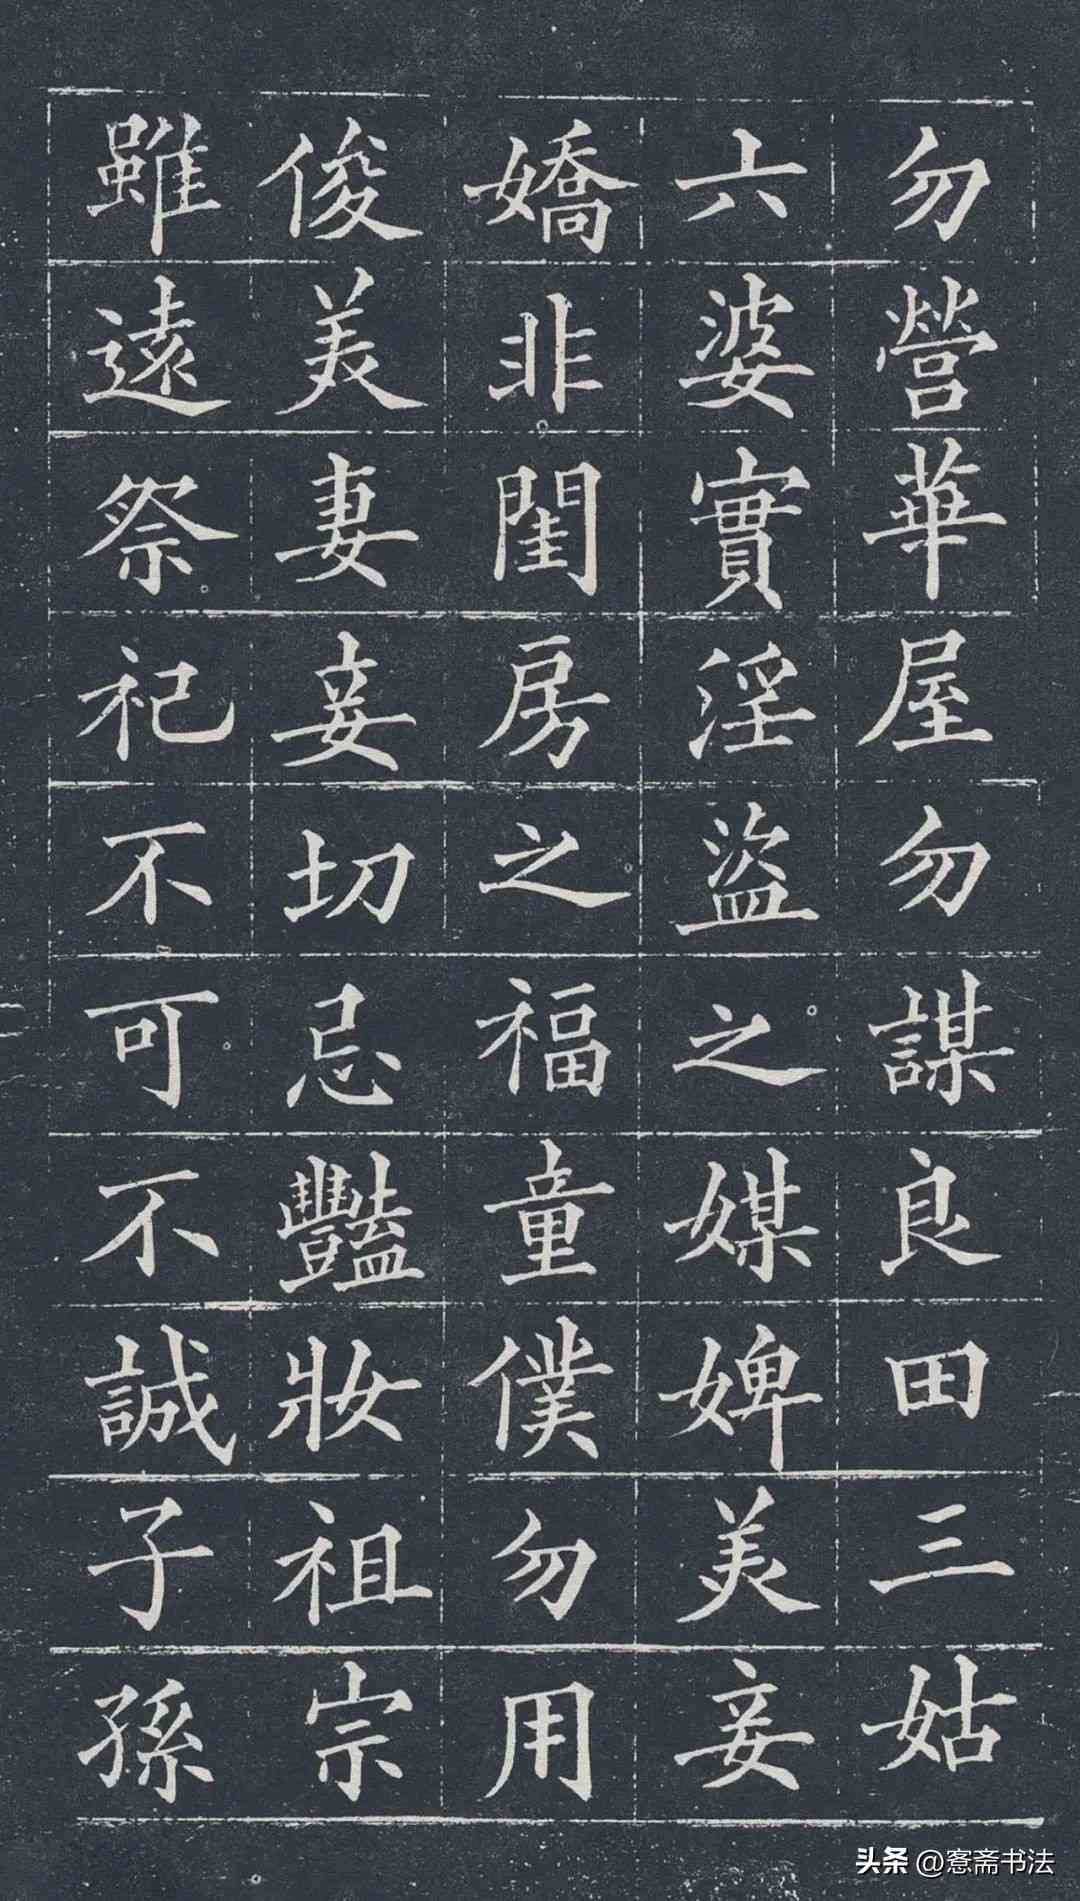 勿營華屋勿謀良田三姑
六婆實淫盜之媒婢美妾
嬌非閨房之福童僕勿用
俊美妻妾切忌豔妝祖宗
雖遠祭祀不可不誠子孫
头条 @窓斋书法